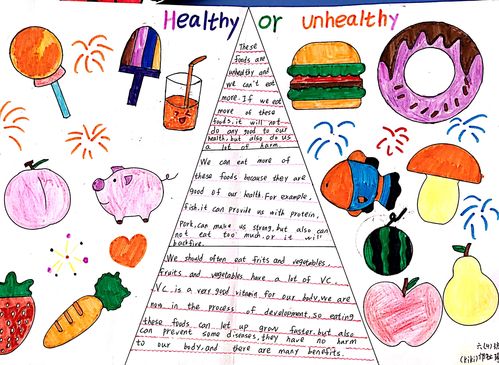 Healthy or unhealthy
These
foods are
unhealthy and
we can't eat
more. If we eat
more of these
foods, it will not
do any good to our
health, but also do us
a lot of harm.
We can eat more of
these foods because they are
good of our health. For example,
fish, it can provide us with protein,
pork, can make us strong, but also can
not eat too much, or it will
backfire.
We should often eat frits and vegetables,
fruits and vegetables have a lot of VC.
VC is a very good vitamin for our body, we are
now in the process of development, so eating
these foods can let up grow faster, but also
can prevent some diseases, they have no harm
to our body, and there are many benefits.
六(4)班
(Kiki)